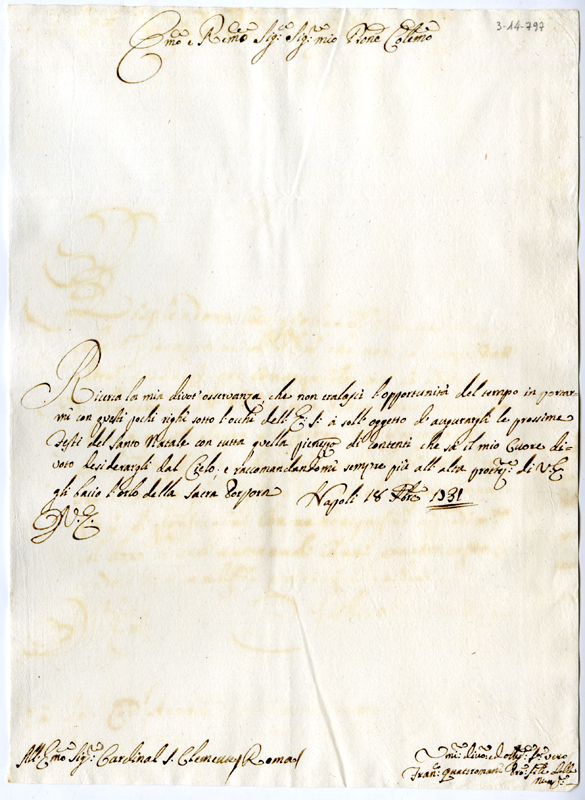 3-14-797
Emo e Remo Sigr. Sigr. mio Prone Colemo
Ricerca la mia divot' osservanza, che non tralasci l'opportunità del tempo in portar-
mi con questi pochi righi sotto l'occhi dell' E. S. à sol' oggetto d' augurargli le prossime
Feste del Santo Natale con tutta quella pienezza di contenti che sà il mio Cuore di-
voto desiderargli dal Cielo, e raccomandandomi sempre più all' alta protez. di V. E.
gli bacio l'orlo della Sacra Porpora Napoli 18 Xbre 1731
D. V. E.
All' Emo Sigr. Cardinal S. Clemente / Roma /
Umo. divo. ed obbmo. serv. vero
Fran. Quattromani